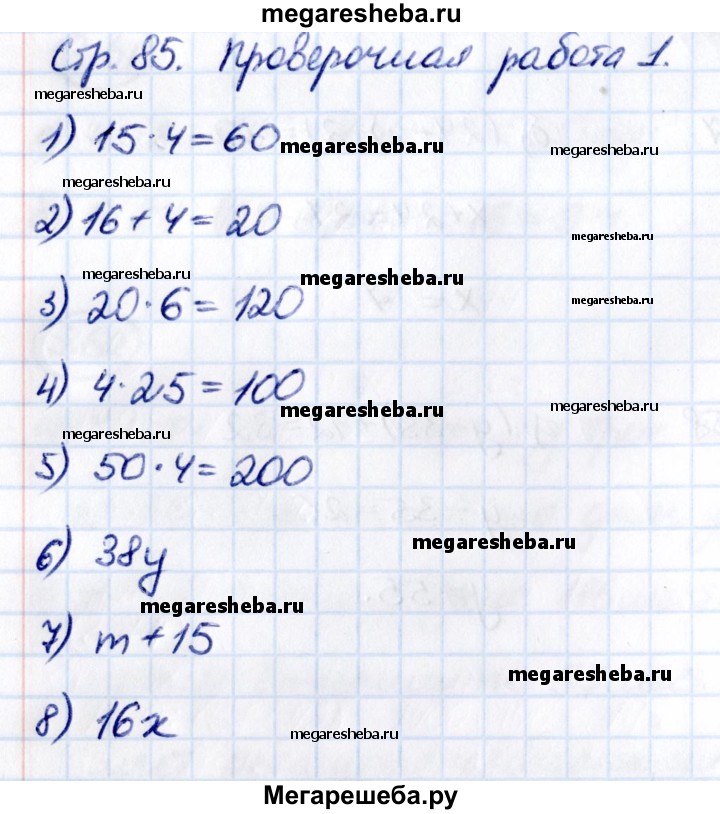 megaresheba.ru
Стр. 85. Проверочная работа 1.
megaresheba.ru
1) 15·4=60
megaresheba.ru
megaresheba.ru
megaresheba.ru
2) 16+4=20
megaresheba.ru
megaresheba.ru
megaresheba.ru
3) 20·6=120
megaresheba.ru
4) 4·25=100
megaresheba.ru
megaresheba.ru
megaresheba.ru
5) 50·4=200
6) 38y
megaresheba.ru
megaresheba.ru
7) m+15
megaresheba.ru
8) 16x
megaresheba.ru
Мегарешеба.ру